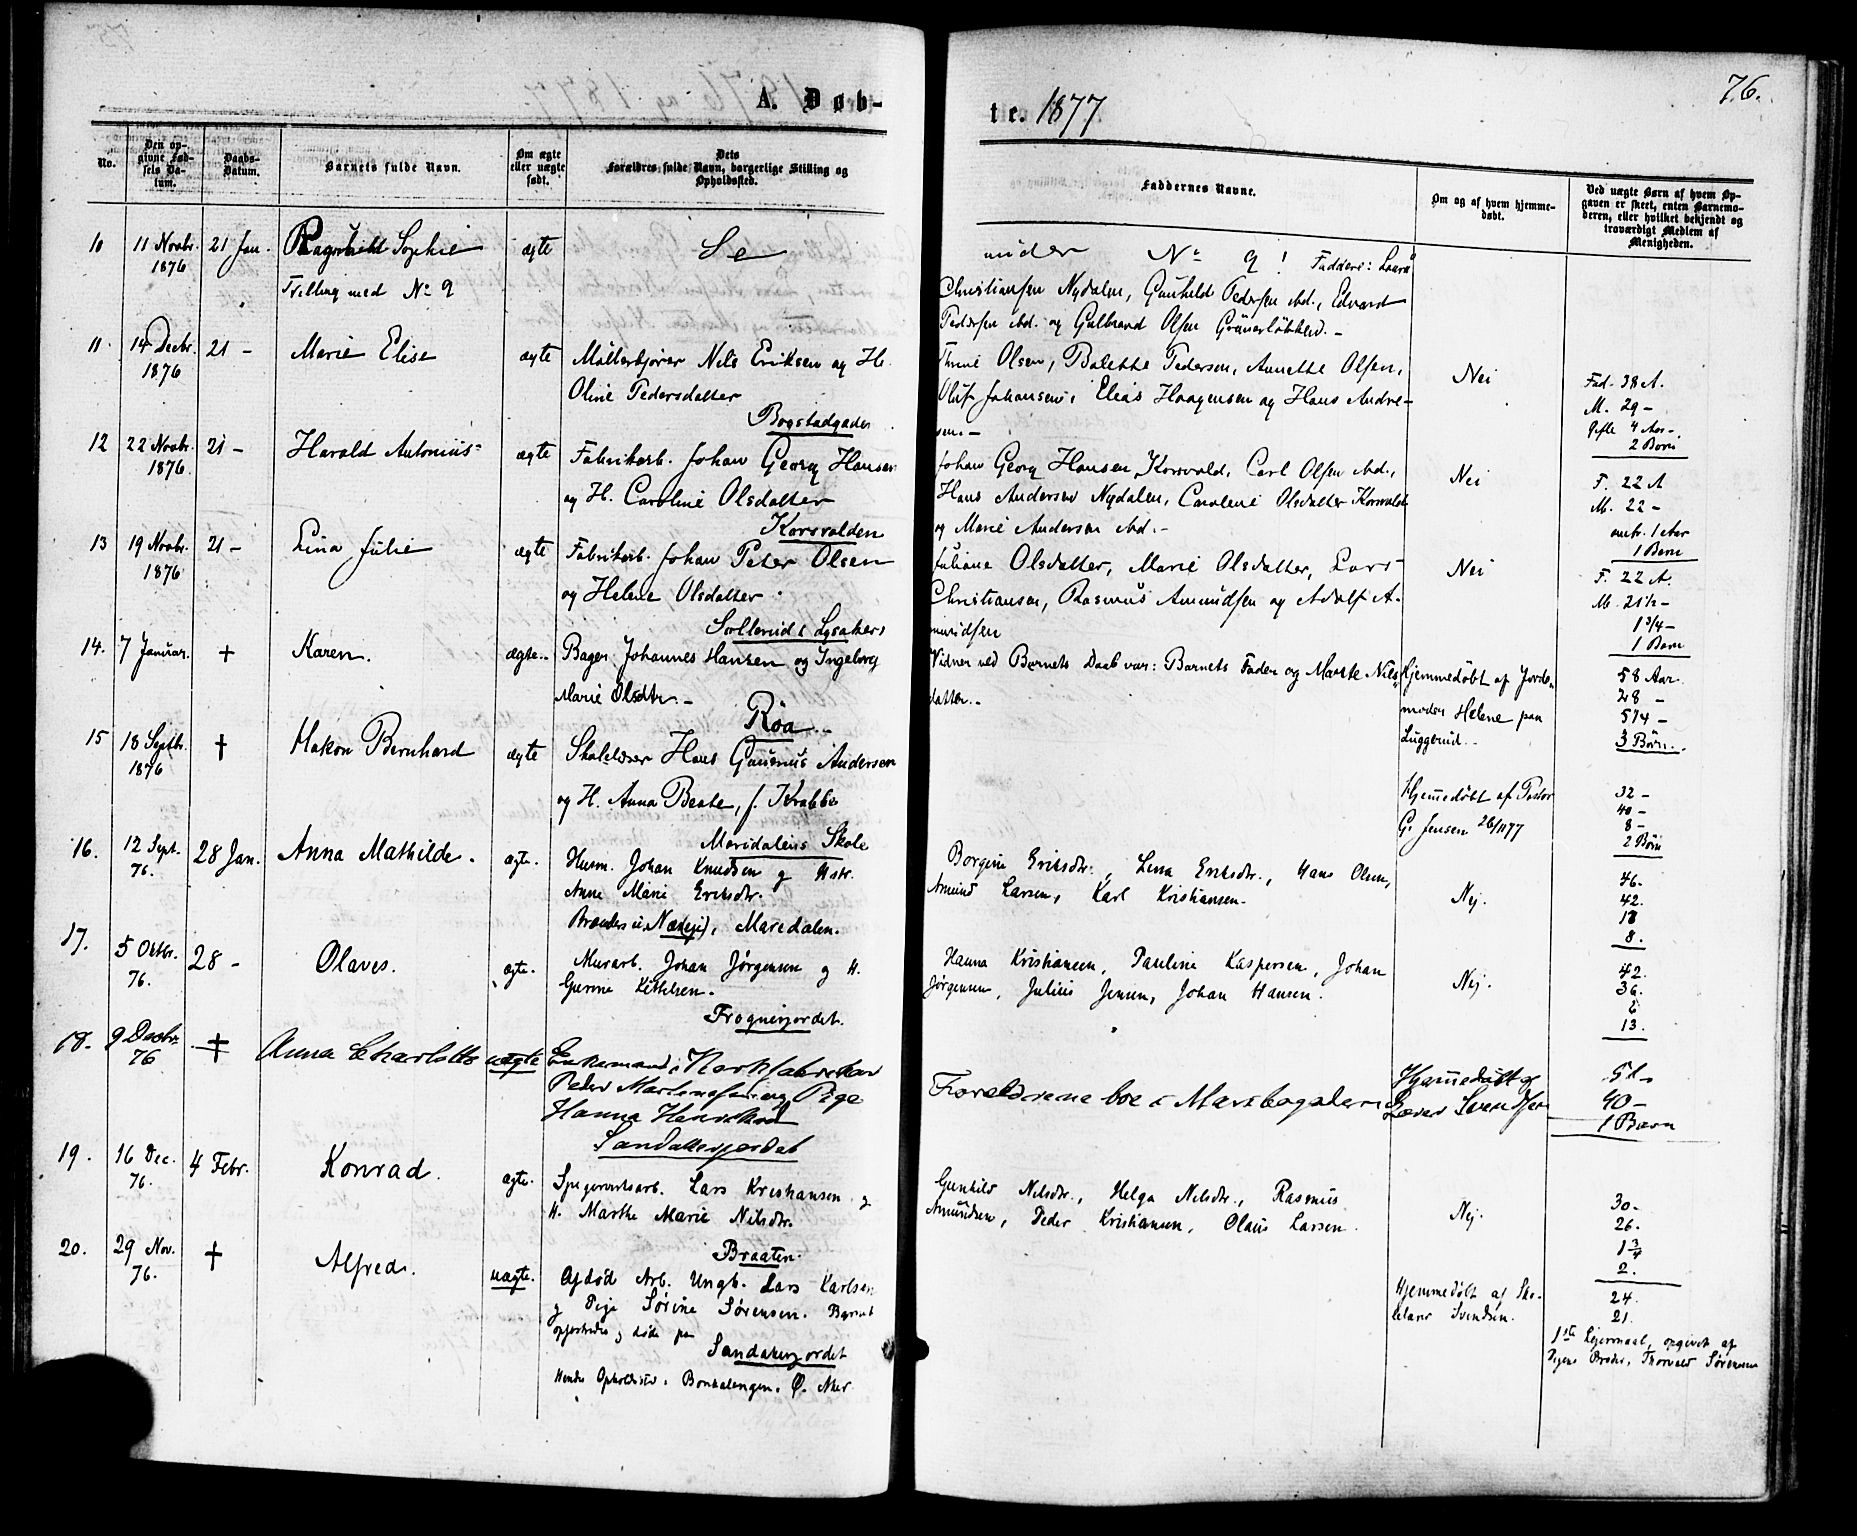 76.
A. Døb-
te. 1877
No.
Den op-
givne Fød-
sels Da-
tum.
Daabs-
Datum.
Barnets fulde Navn.
Om ægte
eller uægte
født.
Dets
Forældres fulde Navn, borgerlige Stilling og
Opholdssted.
Faddernes Navne.
Om og af hvem hjemme-
døbt.
Ved uægte Børn af hvem Op-
gaven er skeet, enten Barnemo-
deren, eller hvilket bekjendt og
troværdigt Medlem af
Menigheden.
10 11 Novbr. 21 Jan. Ragnhild Sophie ægte Se
1876
Tvilling med No 9
under No 9! Faddere: Laura
Christiansen Nydalen, Gunhild Pedersen ibd., Edvard
Pedersen ibd. og Gulbrand Olsen Grünerløkken.-
11 14 Decbr. 21 - Marie Elise ægte Møllerkjører Nils Eriksen og H.
1876
Oline Pedersdatter
Bogstadgaden
Thrine Olsen, Bolette Pedersen, Annette Olsen,
Oluf Johansen, Elias Haagensen og Hans Andre-
sen.-
Nei
Fad. 38 A.
M. 29 -
gifte 4 Aar -
2 Børn
12 22 Novbr. 21 - Harald Antonius ægte Fabrikarb. Johan Georg Hansen
1876
og H. Caroline Olsdatter
Korsvolden
Johan Georg Hansen Korsvold, Carl Olsen ibd.,
Hans Andersen Nydalen, Caroline Olsdatter Korsvold
og Marie Andersen ibd.-
Nei
F. 22 A
M. 22 -
1 Aar
1 Barn
13 19 Novbr. 21 - Lina Julie ægte Fabrikarb. Johan Peter Olsen
1876
og Helene Olsdatter
Sollerud i Lysaker
Juliane Olsdatter, Marie Olsdatter, Lars
Christiansen, Rasmus Amundsen og Adolf A-
mundsen
Nei
F. 22 A.
M. 21½ -
1¾ -
1 Barn
14. 7 Januar. + Karen. ægte. Bager Johannes Hansen og Ingeborg
Marie Olsdtr.-
Røa.
Vidner ved Barnets Daab var: Barnets Fader og Marte Nils-
datter.-
Hjemmedøbt af Jorde-
moder Helene paa
Luggerud.
58 Aar.
28 -
5¼ -
3 Børn.
15 18 Septbr. + Hakon Bernhard ægte Skolelærer Hans Gunerius Andersen
1876
og H. Anna Beate, f. Krabbe
Maridalens Skole
Hjemmedøbt af Pastor
G. Jensen 26/1177
32 -
40 -
8 -
2 Børn
16. 12 Sept. 28 Jan. Anna Mathilde. ægte. Husm. Johan Knudsen og Hstr.
76.
Anne Marie Eriksdtr.
Maredalen.
Borgine Eriksdtr., Lina Eriksdtr., Hans Olsen,
Amund Larsen, Karl Kristiansen.
Nej.
46.
42.
18
8.
17. 5 Oktbr. 28 - Olaves. ægte. Murarb. Johan Jørgensen og H.
76.
Gurine Kittelsen.
Frognerjordet.
Hanna Kristiansen, Pauline Kaspersen, Johan
Jørgensen, Julius Jensen, Johan Hansen.
Nej.
42.
36.
13.
18. 9 Decbr. + Anna Charlotte uægte Enkemand, Korkfabrikør
76
Peder Martinsen og Pige
Hanna Henriksen
Sandakerjordet
Forældrene boe i Maribogalen
Hjemmedøbt af
Lærer Svendsen
51 -
40 -
1 Barn
19. 16 Dec. 4 Febr. Konrad. ægte. Spigerverksarb. Lars Kristiansen og
76.
H. Marthe Marie Nilsdtr.
Braaten.
Gunhild Nilsdtr., Helga Nilsdtr., Rasmus
Amundsen, Peder Kristiansen, Olaus Larsen.
Nej.
30 -
26.
1¾
2.
20. 29 Nov. + Alfred. uægte. Afdød Arb. Ungk. Lars Karlsen
76.
og Pige Sørine Sørensen. Barnet
opfostredes og døde paa
Sandakerjordet
Hendes Opholdssted: Bonkalengen, Ø. Aker
Hjemmedøbt af Sko-
lelærer Svendsen.
24.
21.
1ste Lejermaal, opgivet af
Pigens Broder, Thorvald Sørensen